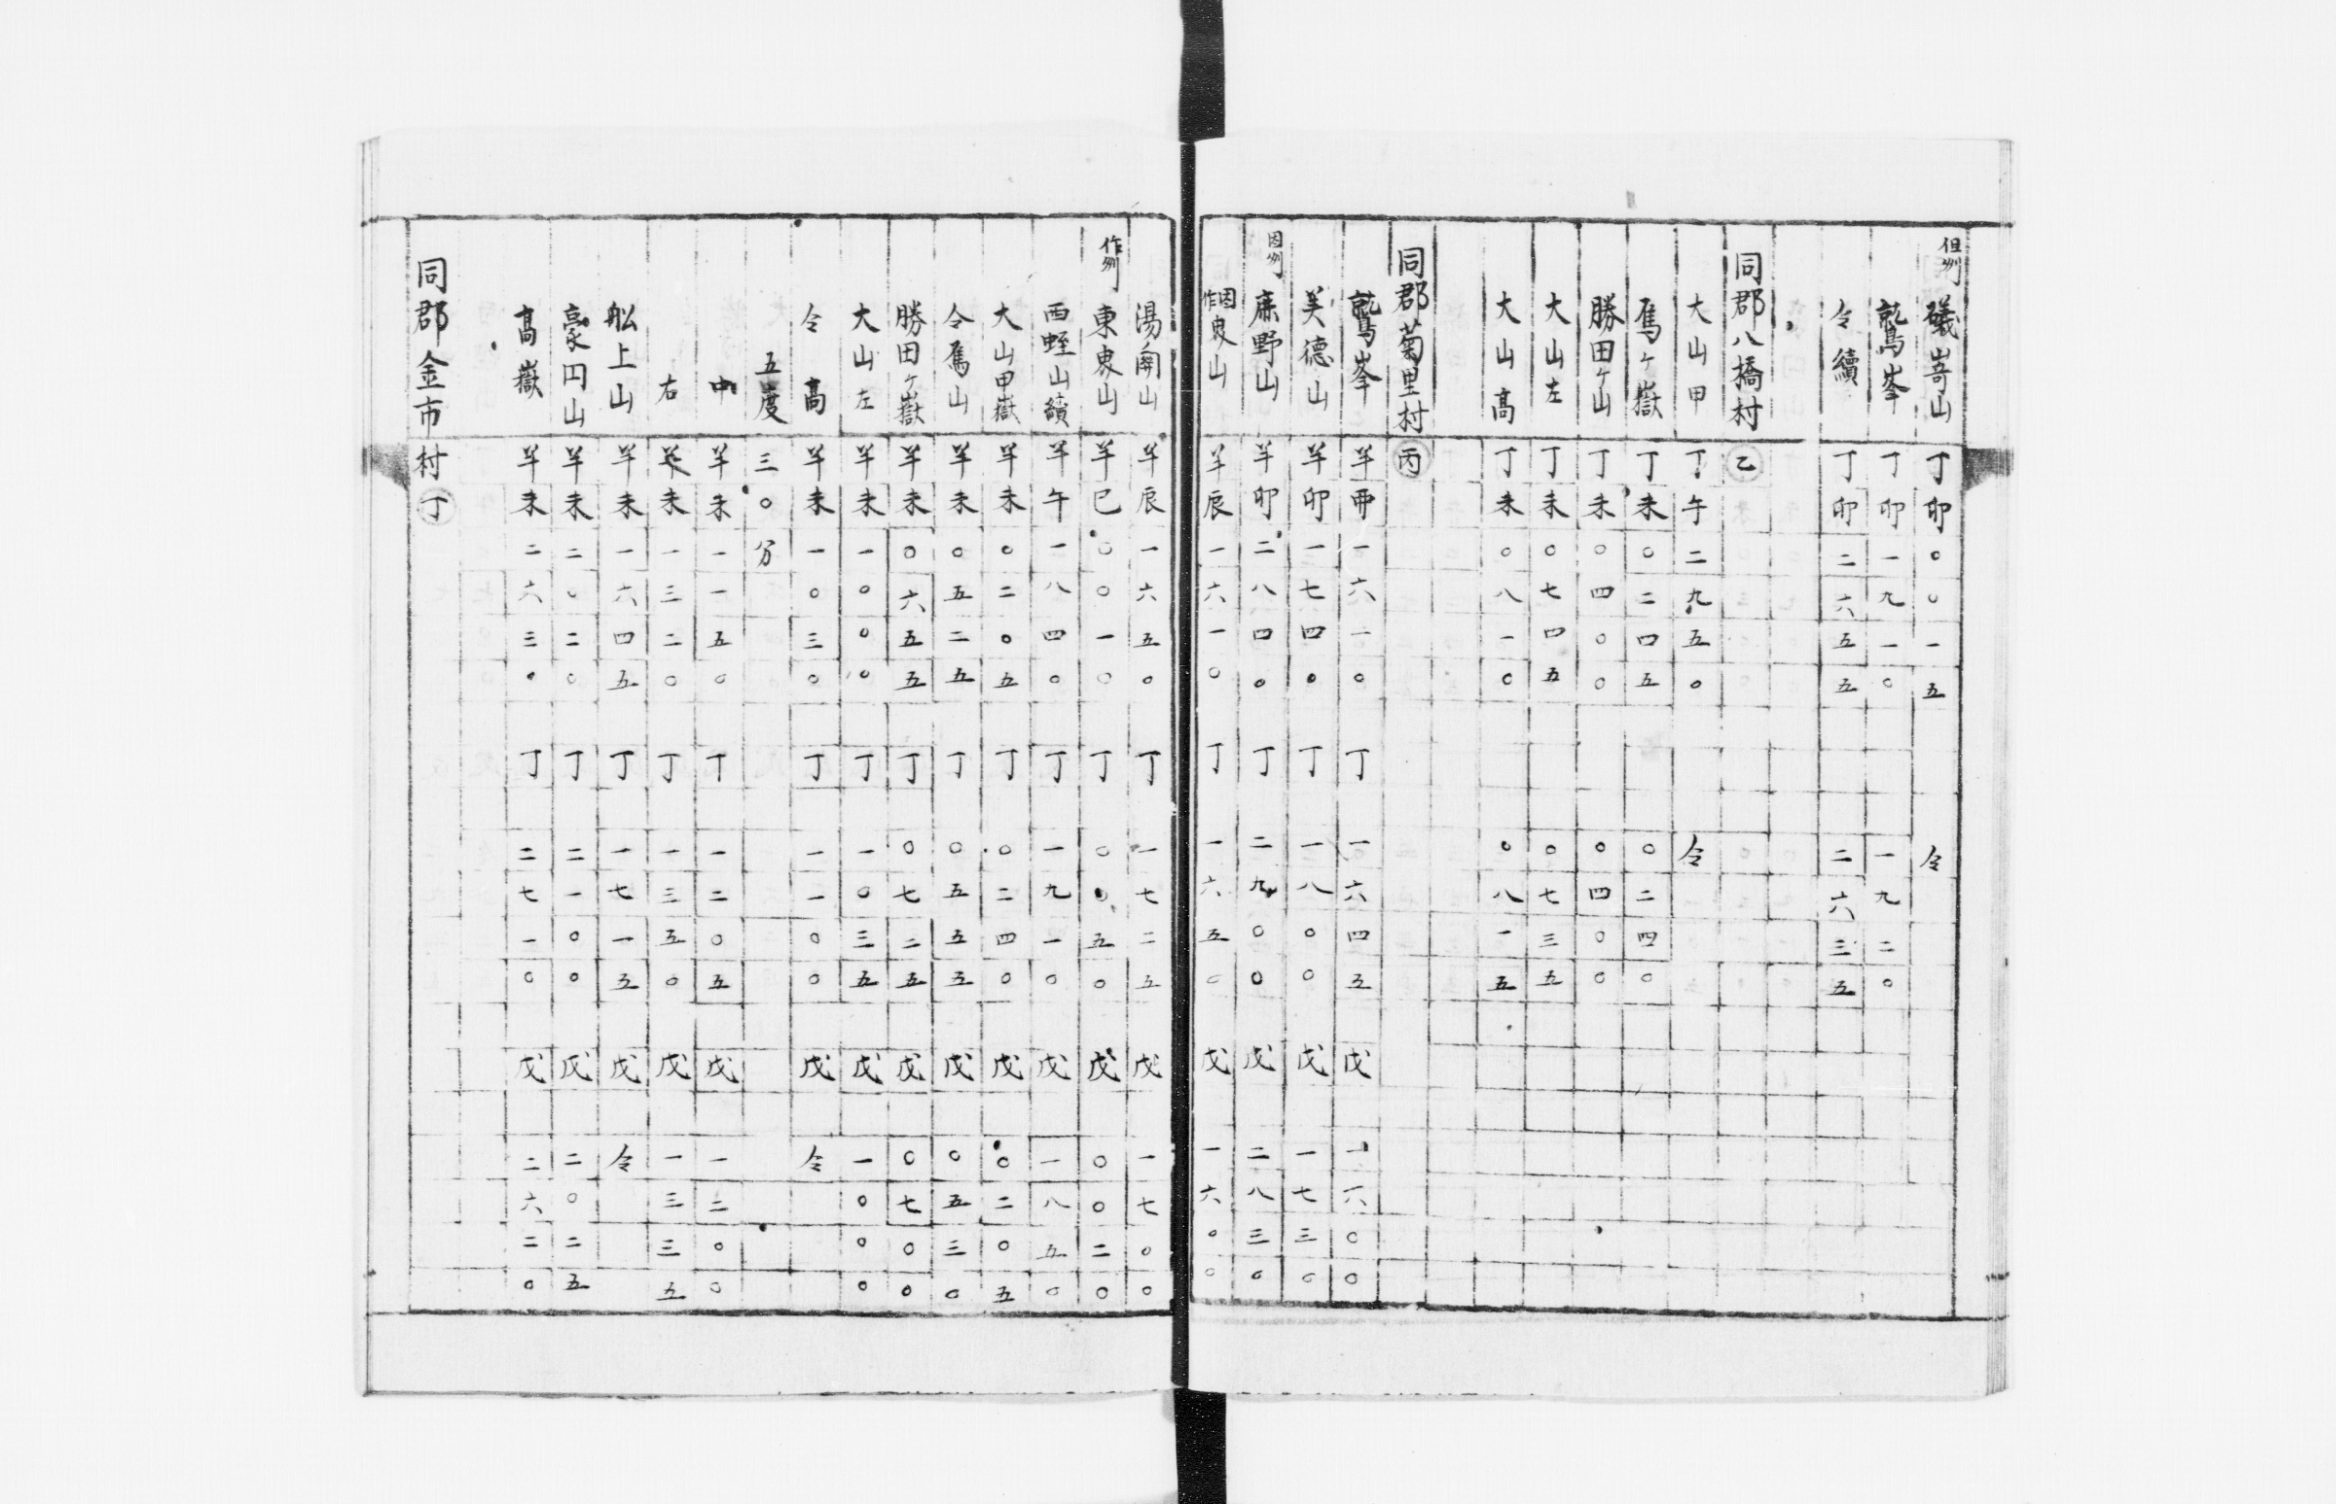 但州 礒嵜山 丁卯〇〇一五 仝
鷲峯 丁卯一九一〇 一九二〇
仝續 丁卯二六五五 二六三五
同郡八橋村 乙
大山甲 丁午二九五〇 仝
鳫ケ嶽 丁未〇二四五 〇二四〇
勝田ケ山 丁未〇四〇〇 〇四〇〇
大山左 丁未〇七四五 〇七三五
大山高 丁未〇八一〇 〇八一五
同郡菊里村 丙
鷲峯 羊丣一六一〇 丁一六四五 戊一六〇〇
美德山 羊卯一七四〇 丁一八〇〇 戊一七三〇
因州 麻野山 羊卯二八四〇 丁二九〇〇 戊二八三〇
因作 山 羊辰一六一〇 丁一六五〇 戊一六〇〇
湯南山 羊辰一六五〇 丁一七二五 戊一七〇〇
作州 東山 羊巳〇〇一〇 丁〇〇五〇 戊〇〇二〇
西蛭山續 羊午一八四〇 丁一九一〇 戊一八五〇
大山甲嶽 羊未〇二〇五 丁〇二四〇 戊〇二〇五
仝鳫山 羊未〇五二五 丁〇五五五 戊〇五三〇
勝田ケ嶽 羊未〇六五五 丁〇七二五 戊〇七〇〇
大山左 羊未一〇〇〇 丁一〇三五 戊一〇〇〇
仝高 羊未一〇三〇 丁一一〇〇 戊仝
五度三〇分
中 羊未一一五〇 丁一二〇五 戊一二〇〇
右 羊未一三二〇 丁一三五〇 戊一三三五
舩上山 羊未一六四五 丁一七一五 戊仝
豪円山 羊未二〇二〇 丁二一〇〇 戊二〇二五
高嶽 羊未二六三〇 丁二七一〇 戊二六二〇
同郡金市村 丁